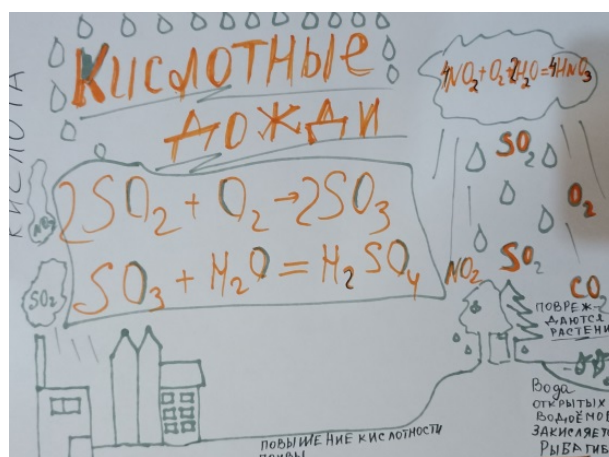 Кислотные
дожди
КИСЛОТА
4NO₂+O₂+2H₂O=4HNO₃
2SO₂ + O₂ → 2SO₃
SO₃ + H₂O = H₂SO₄
SO₂
SO₂
O₂
NO₂
SO₂
CO₂
ПОВРЕЖ-
ДАЮТСЯ
РАСТЕНИ
Вода
ОТКРЫТЫХ
ВОДОЁМОВ
ЗАКИСЛЯЕТС
РЫБА ГИБ
ПОВЫШЕНИЕ КИСЛОТНОСТИ
ПОЧВЫ